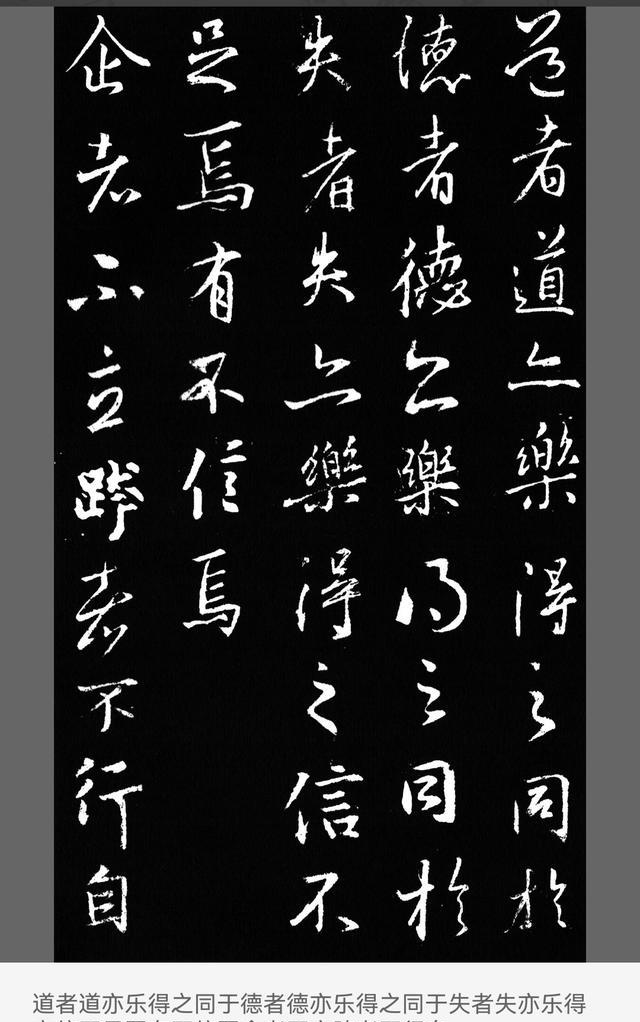 道者道亦樂得之同於
德者德亦樂得之同於
失者失亦樂得之信不
足焉有不信焉
企者不立跨者不行自
道者道亦乐得之同于德者德亦乐得之同于失者失亦乐得